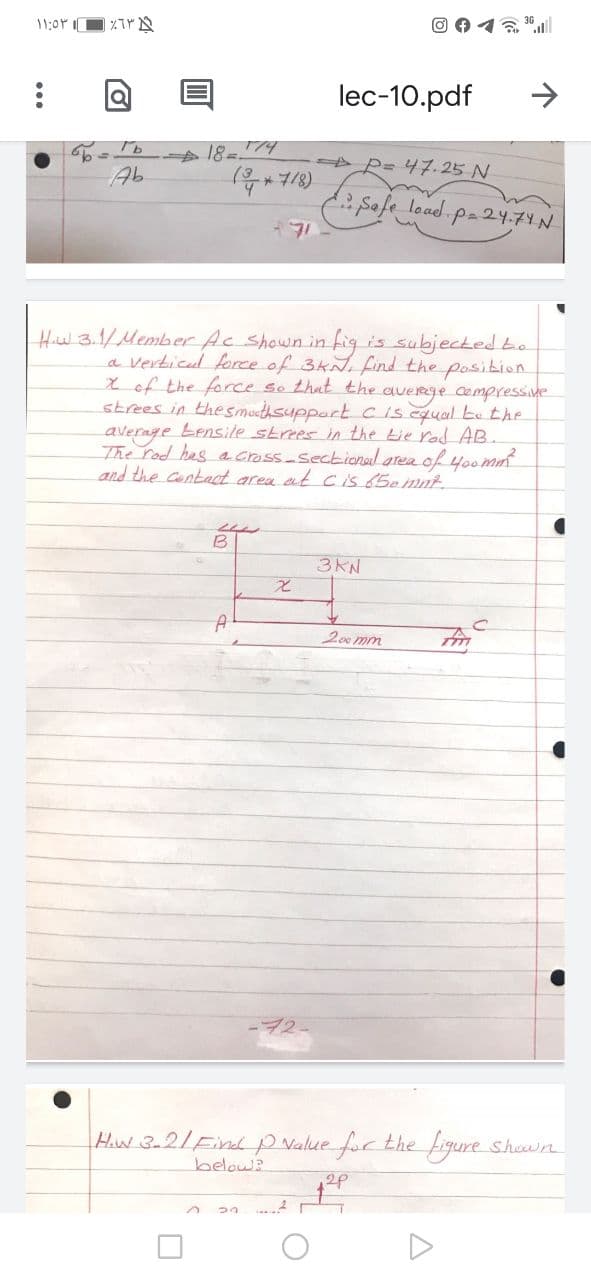 ١١:٥٣ ٪٦٣ 3G
lec-10.pdf
Ab
18=
(3/4 * 7/8)
⇒ P= 47.25 N
∴ Safe load p= 24.74 N
- 71 -
H.w 3.1/ Member Ac Shown in fig is subjected to
a vertical force of 3KN, find the position
x of the force so that the average compressive
strees in the smoothsupport c is equal to the
average tensile strees in the tie rod AB.
The rod has a cross-sectional area of 400mm²
and the contact area at c is 650 mm².
B
3KN
x
A
C
200mm
-72-
H.w 3-2/ Find p value for the figure shown
below?
2P